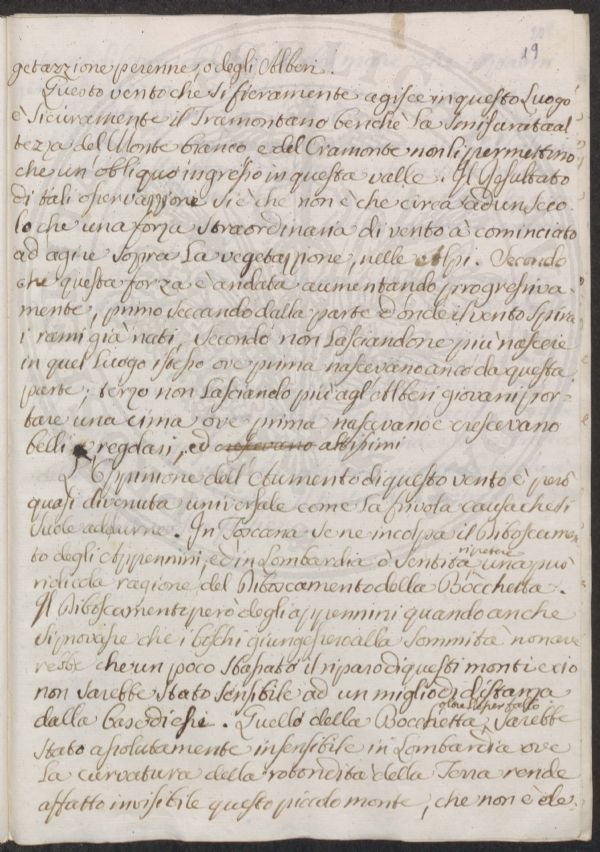 19
getazzione perenne, o degli Alberi.
Questo vento che si fieramente agisce in questo Luogo
è Sicuramente il Tramontano benchè La Smisurata al
tezza del Monte bianco e del Cramonte non li permettino
che un obliquo ingresso in questa valle. Il Resultato
di tali osservazzione si è che non è che circa ad un Seco
lo che una forza straordinaria di vento à cominciato
ad agire sopra La vegetazzione, nelle Alpi. Secondo
che questa forza è andata aumentando progressiva-
mente, primo seccando dalla parte d'onde il vento spira
i rami già nati, secondo non Lasciandone più nascere
in quel Luogo istesso ove prima nascevano anco da questa
parte; terzo non Lasciando più agl'Alberi giovani por-
tare una cima ove prima nascevano e crescevano
belli e regolari, ed crescevano altissimi
L'Oppinione dell'Aumento di questo vento è però
quasi divenuta universale come La frivola causa che si
suole addurne. In Toscana se ne incolpa il Diboscamen-
to degli Appennini, ed in Lombardia ò Sentita una più
ripetere
ridicola ragione del Diboscamento della Bocchetta.
Il Diboscamento però degli appennini quando anche
si provasse che i boschi giungessero alla Sommità non av
rebbe che un poco sbassato il riparo di questi monti e ciò
non sarebbe stato sensibile ad un miglio di distanza
dalla base di essi. Quello della Bocchetta, sarebbe
stato assolutamente insensibile in Lombardia ove
La curvatura della rotondità della Terra rende
affatto invisibile questo piccolo monte, che non è ele-